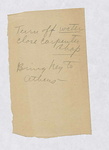 Turn off water
close carpenter
shop
Bring Key to